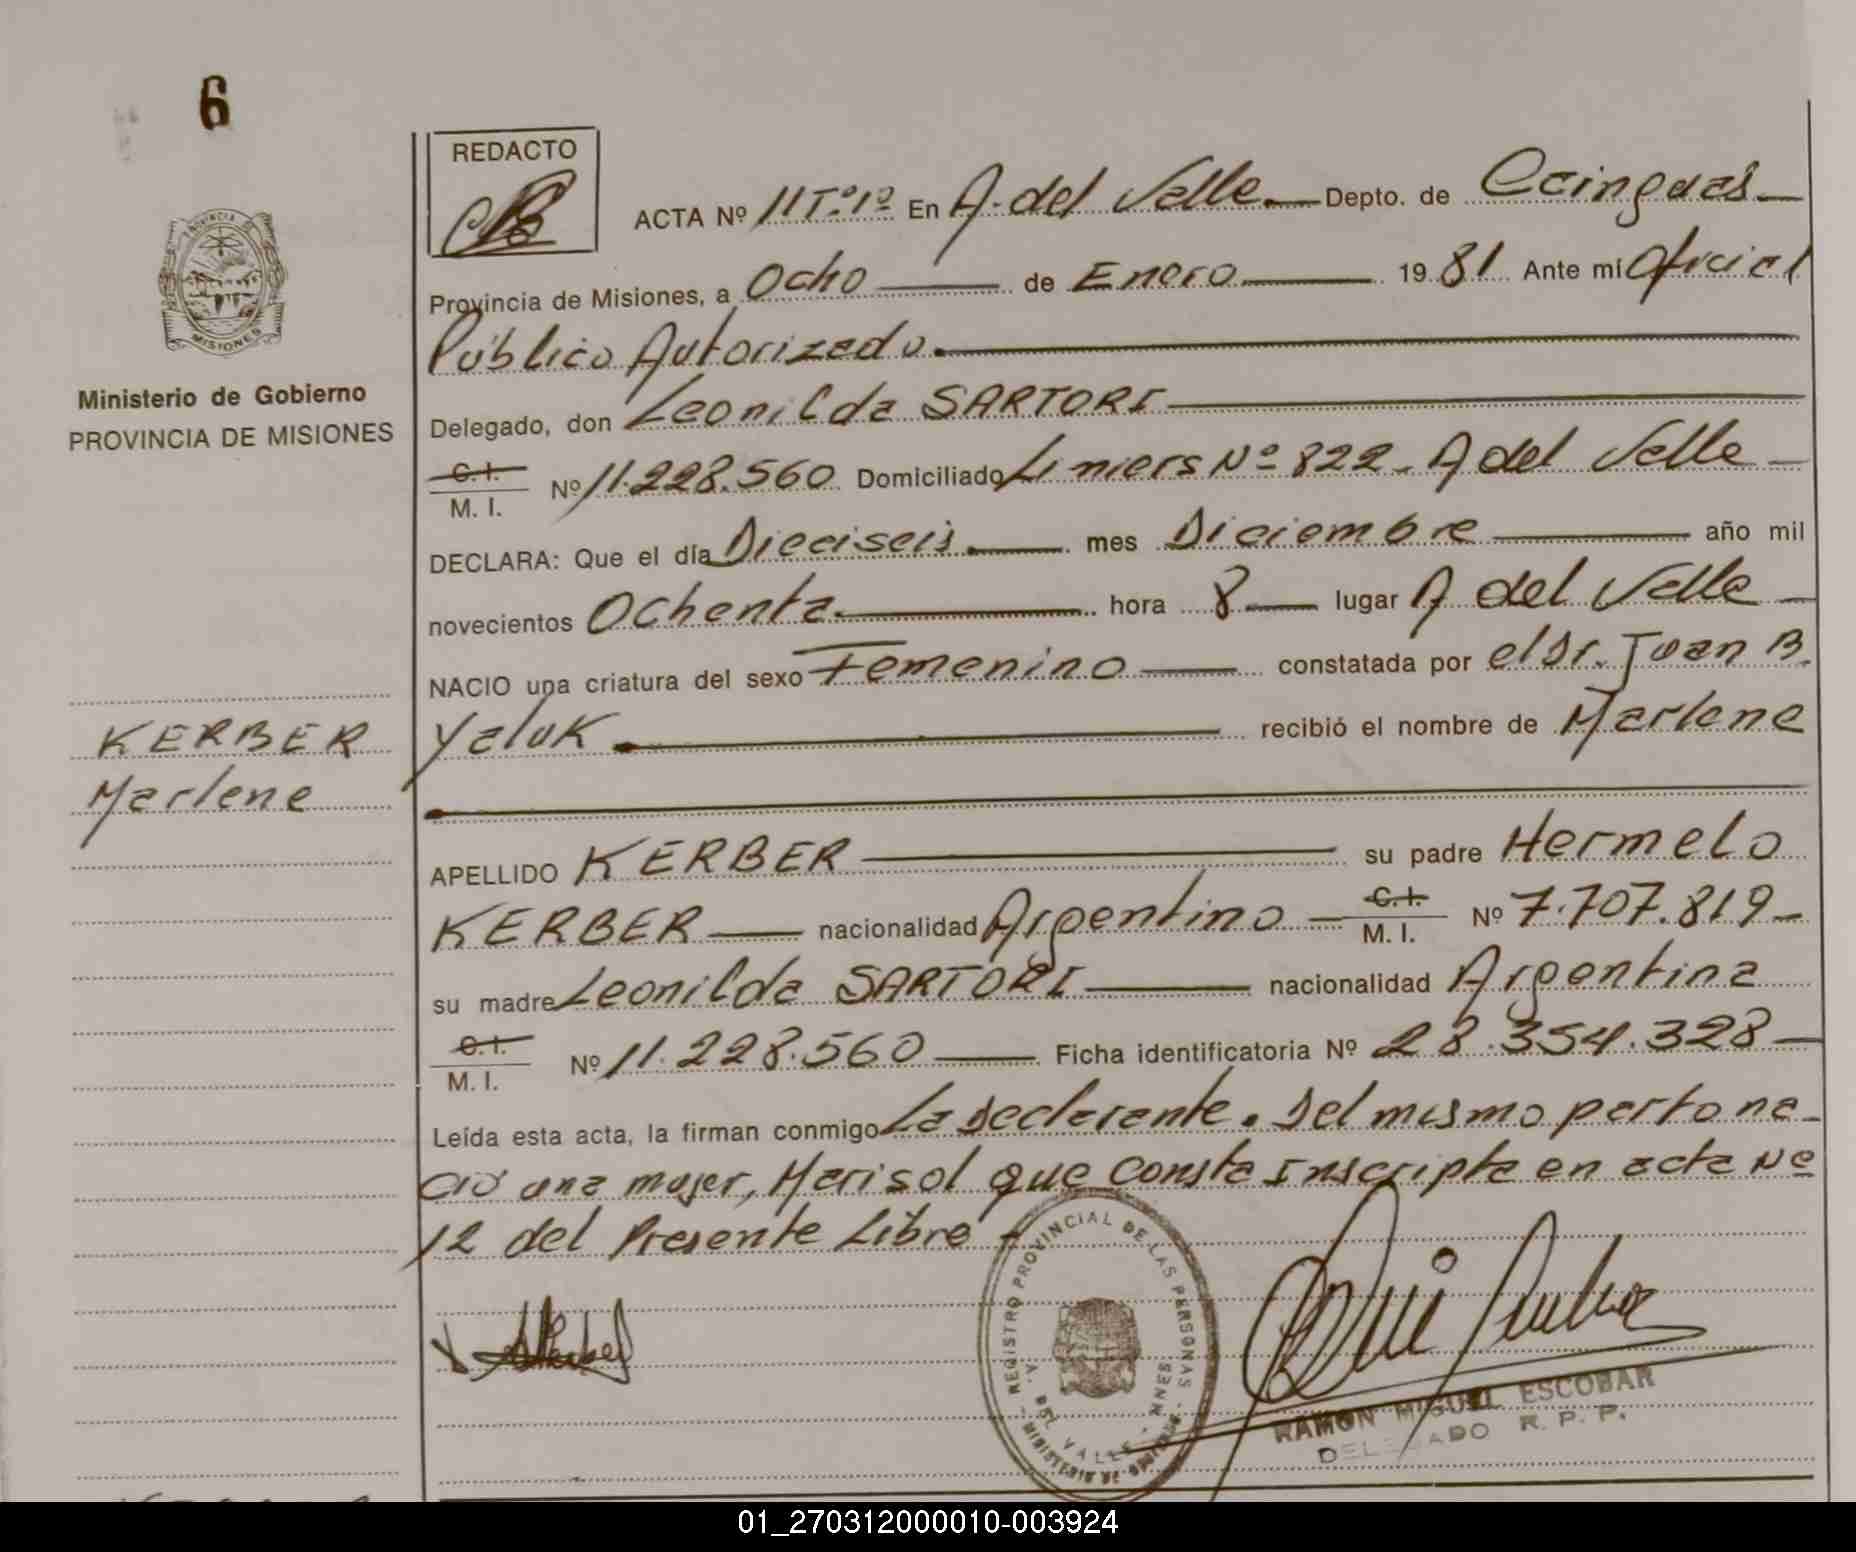 6
REDACTO
ACTA Nº 11 Tº 1º En A. del Valle. Depto. de Cainguas
Provincia de Misiones, a Ocho de Enero 1981 Ante mi Oficial
Público Autorizado.
Delegado, don Leonilda SARTORI
C.I. M. I. Nº 11.228.560 Domiciliado Liniers Nº 822. A del Valle
DECLARA: Que el día Dieciseis mes Diciembre año mil
novecientos Ochenta hora 8 lugar A del Valle
NACIO una criatura del sexo Femenino constatada por el Dr. Juan B.
Yaluk recibió el nombre de Marlene
APELLIDO KERBER su padre Hermelo
KERBER nacionalidad Argentino C.I. M. I. Nº 7.707.819
su madre Leonilda SARTORI nacionalidad Argentina
C.I. M. I. Nº 11.228.560 Ficha identificatoria Nº 28.354.328
Leída esta acta, la firman conmigo La Declarante. Del mismo parto na-
ció una mujer, Marisol que consta Inscripta en acta Nº
12 del Presente Libro
PROVINCIA DE
MISIONES
Ministerio de Gobierno
PROVINCIA DE MISIONES
KERBER
Marlene
REGISTRO PROVINCIAL DE LAS PERSONAS
A. DEL VALLE - MNES
RAMON MIGUEL ESCOBAR
DELEGADO R. P. P.
01_270312000010-003924